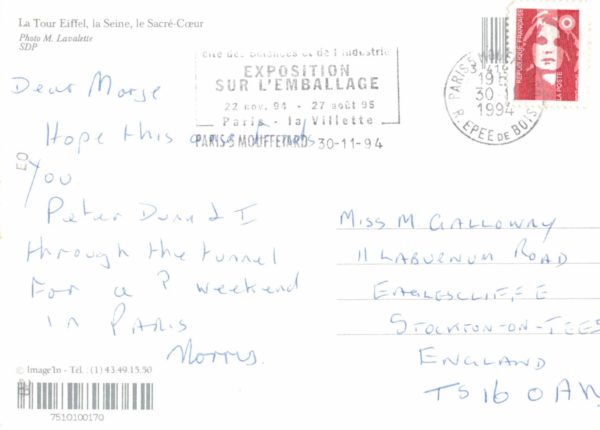 La Tour Eiffel, la Seine, le Sacré-Cœur
Photo M. Lavalette
SDP
Cité des Sciences et de l'Industrie
EXPOSITION
SUR L'EMBALLAGE
22 nov. 94 - 27 août 95
Paris - la Villette
PARIS 5 MOUFFETARD 30-11-94
PARIS
19H
30-11
1994
R. EPEE DE BOIS
REPUBLIQUE FRANÇAISE
LA POSTE
Dear Marge
Hope this finds
you
Peter Dunn & I
through the tunnel
For a ? weekend
in PARIS
Norris.
MISS M GALLOWAY
11 LABURNUM ROAD
EAGLESCLIFFE
STOCKTON-ON-TEES
ENGLAND
TS16 0A
© Image'In - Tél. : (1) 43.49.15.50
7510100170